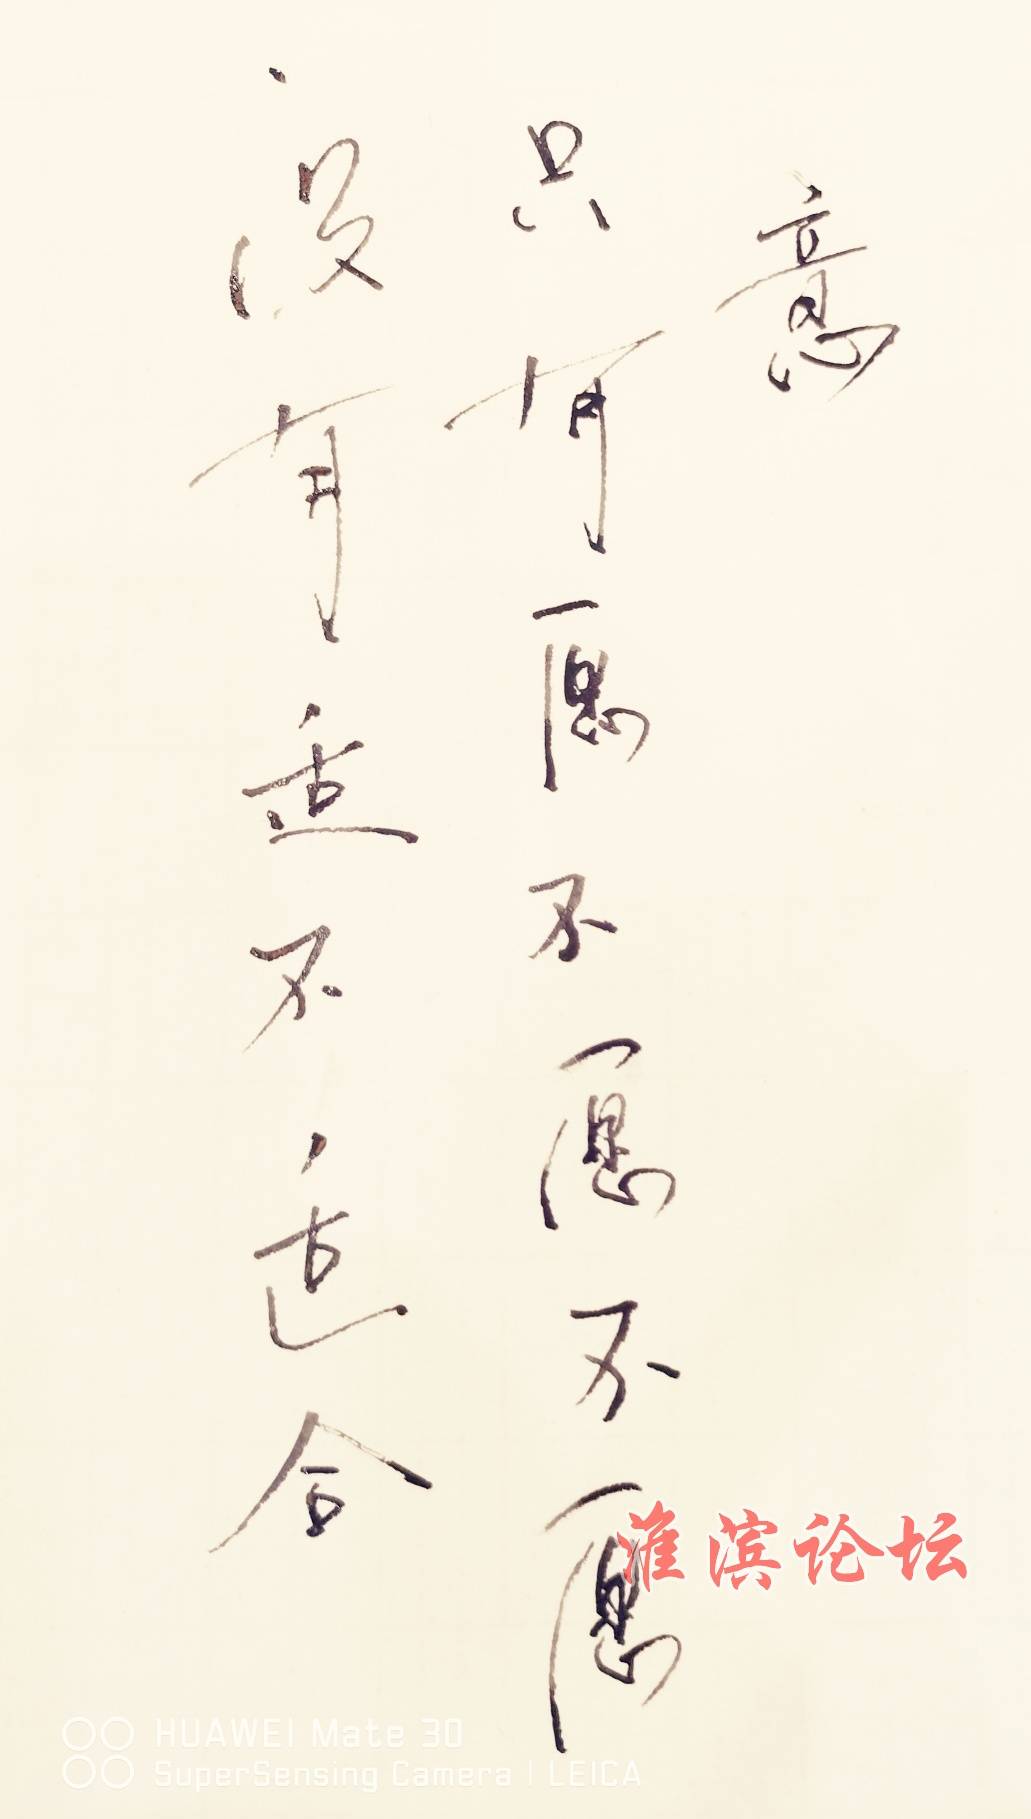 没有适不适合
只有愿不愿不愿
意
淮滨论坛
HUAWEI Mate 30
SuperSensing Camera | LEICA